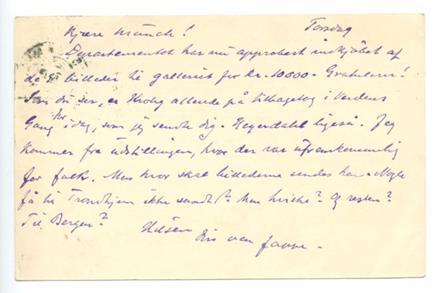 Kjære Munch! Torsdag
Departementet har nu approbert indkjøbet af
de billeder til galleriet for kr. 10000 – Gratulerer!
Som du ser, er Krohg allerede på tilbagetog i Verdens
Gang i dag, som jeg sendte dig. Heyerdahl ligeså. Jeg
kommer fra udstillingen, hvor der var ufremkommelig
for folk. Men hvor skal billederne sendes hen. Nogle
få til Trondhjem ikke sandt? Men hvilke? Og resten?
Til Bergen? Hilsen
Din ven Jappe.